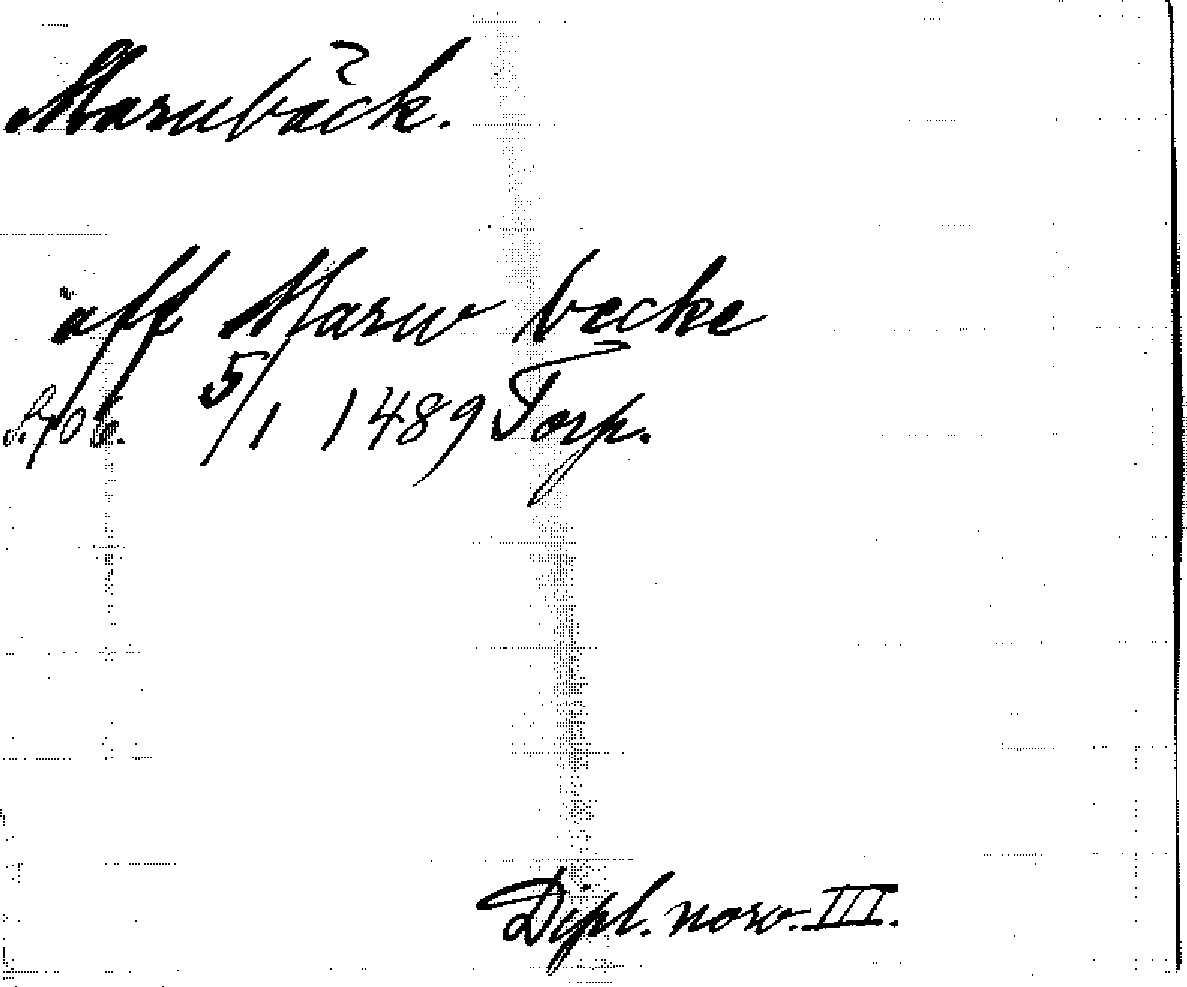 Marubäck.
aff Maruv becke
S. 706. 5/1 1489 Torp.
Dipl. norv. III.